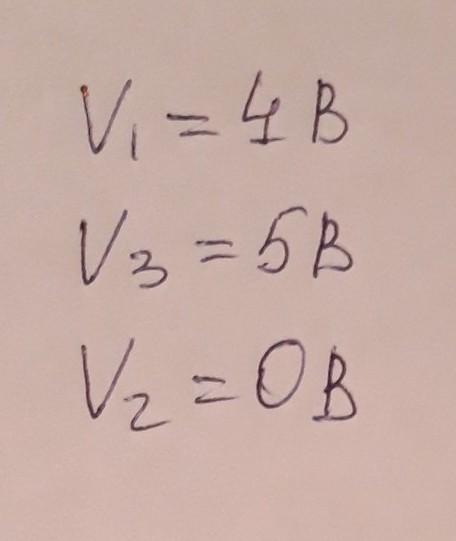 V₁ = 4 В
V₃ = 5 В
V₂ = 0 В